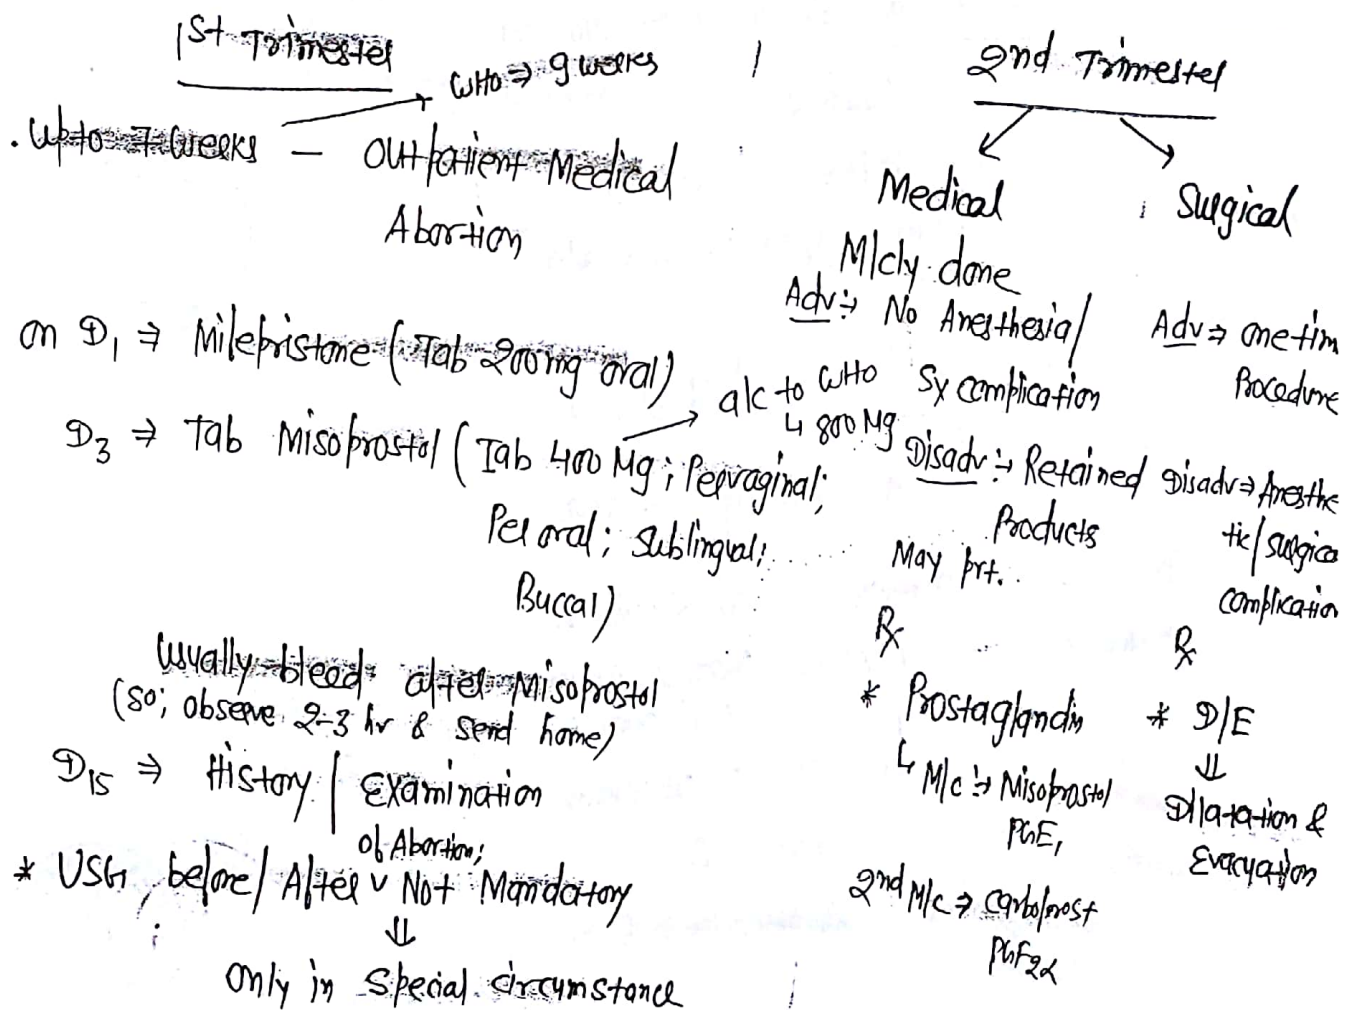 1st Trimester
WHO ⇒ 9 weeks
. Upto 7 weeks – Outpatient Medical
Abortion
on D1 ⇒ Mifepristone (Tab 200mg oral)
D3 ⇒ Tab Misoprostol (Tab 400 Mg; Pervaginal;
a/c to WHO
↳ 800 Mg
Per oral; Sublingual;
Buccal)
Usually bleed after Misoprostol
(so; observe 2-3 hr & send home)
D15 ⇒ History / Examination
of Abortion;
* USG before/After Not Mandatory
⇓
only in special circumstance
2nd Trimester
Medical
M/cly done
Adv:→ No Anesthesia/
Sx complication
Disadv:→ Retained
Products
May prt..
Rx
* Prostaglandin
↳ M/c :→ Misoprostol
PGE1
2nd M/c ⇒ Carboprost
PGF2α
Surgical
Adv ⇒ one tim
Procedure
Disadv ⇒ Anesthe
tic/surgica
complication
Rx
* D/E
⇓
Dilatation &
Evacuation